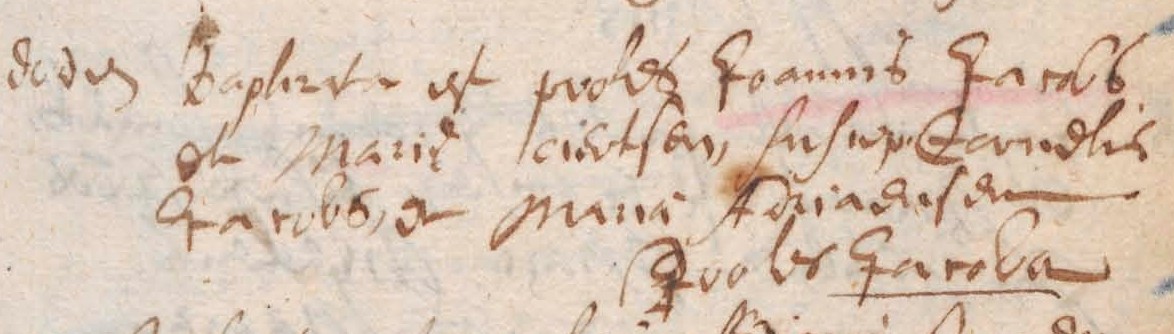 eodem Baptizata est proles Joannis Jacobs
et Mariæ suscep. Cornelis
Jacobs, et Maria Adriaensen
Proles Jacoba